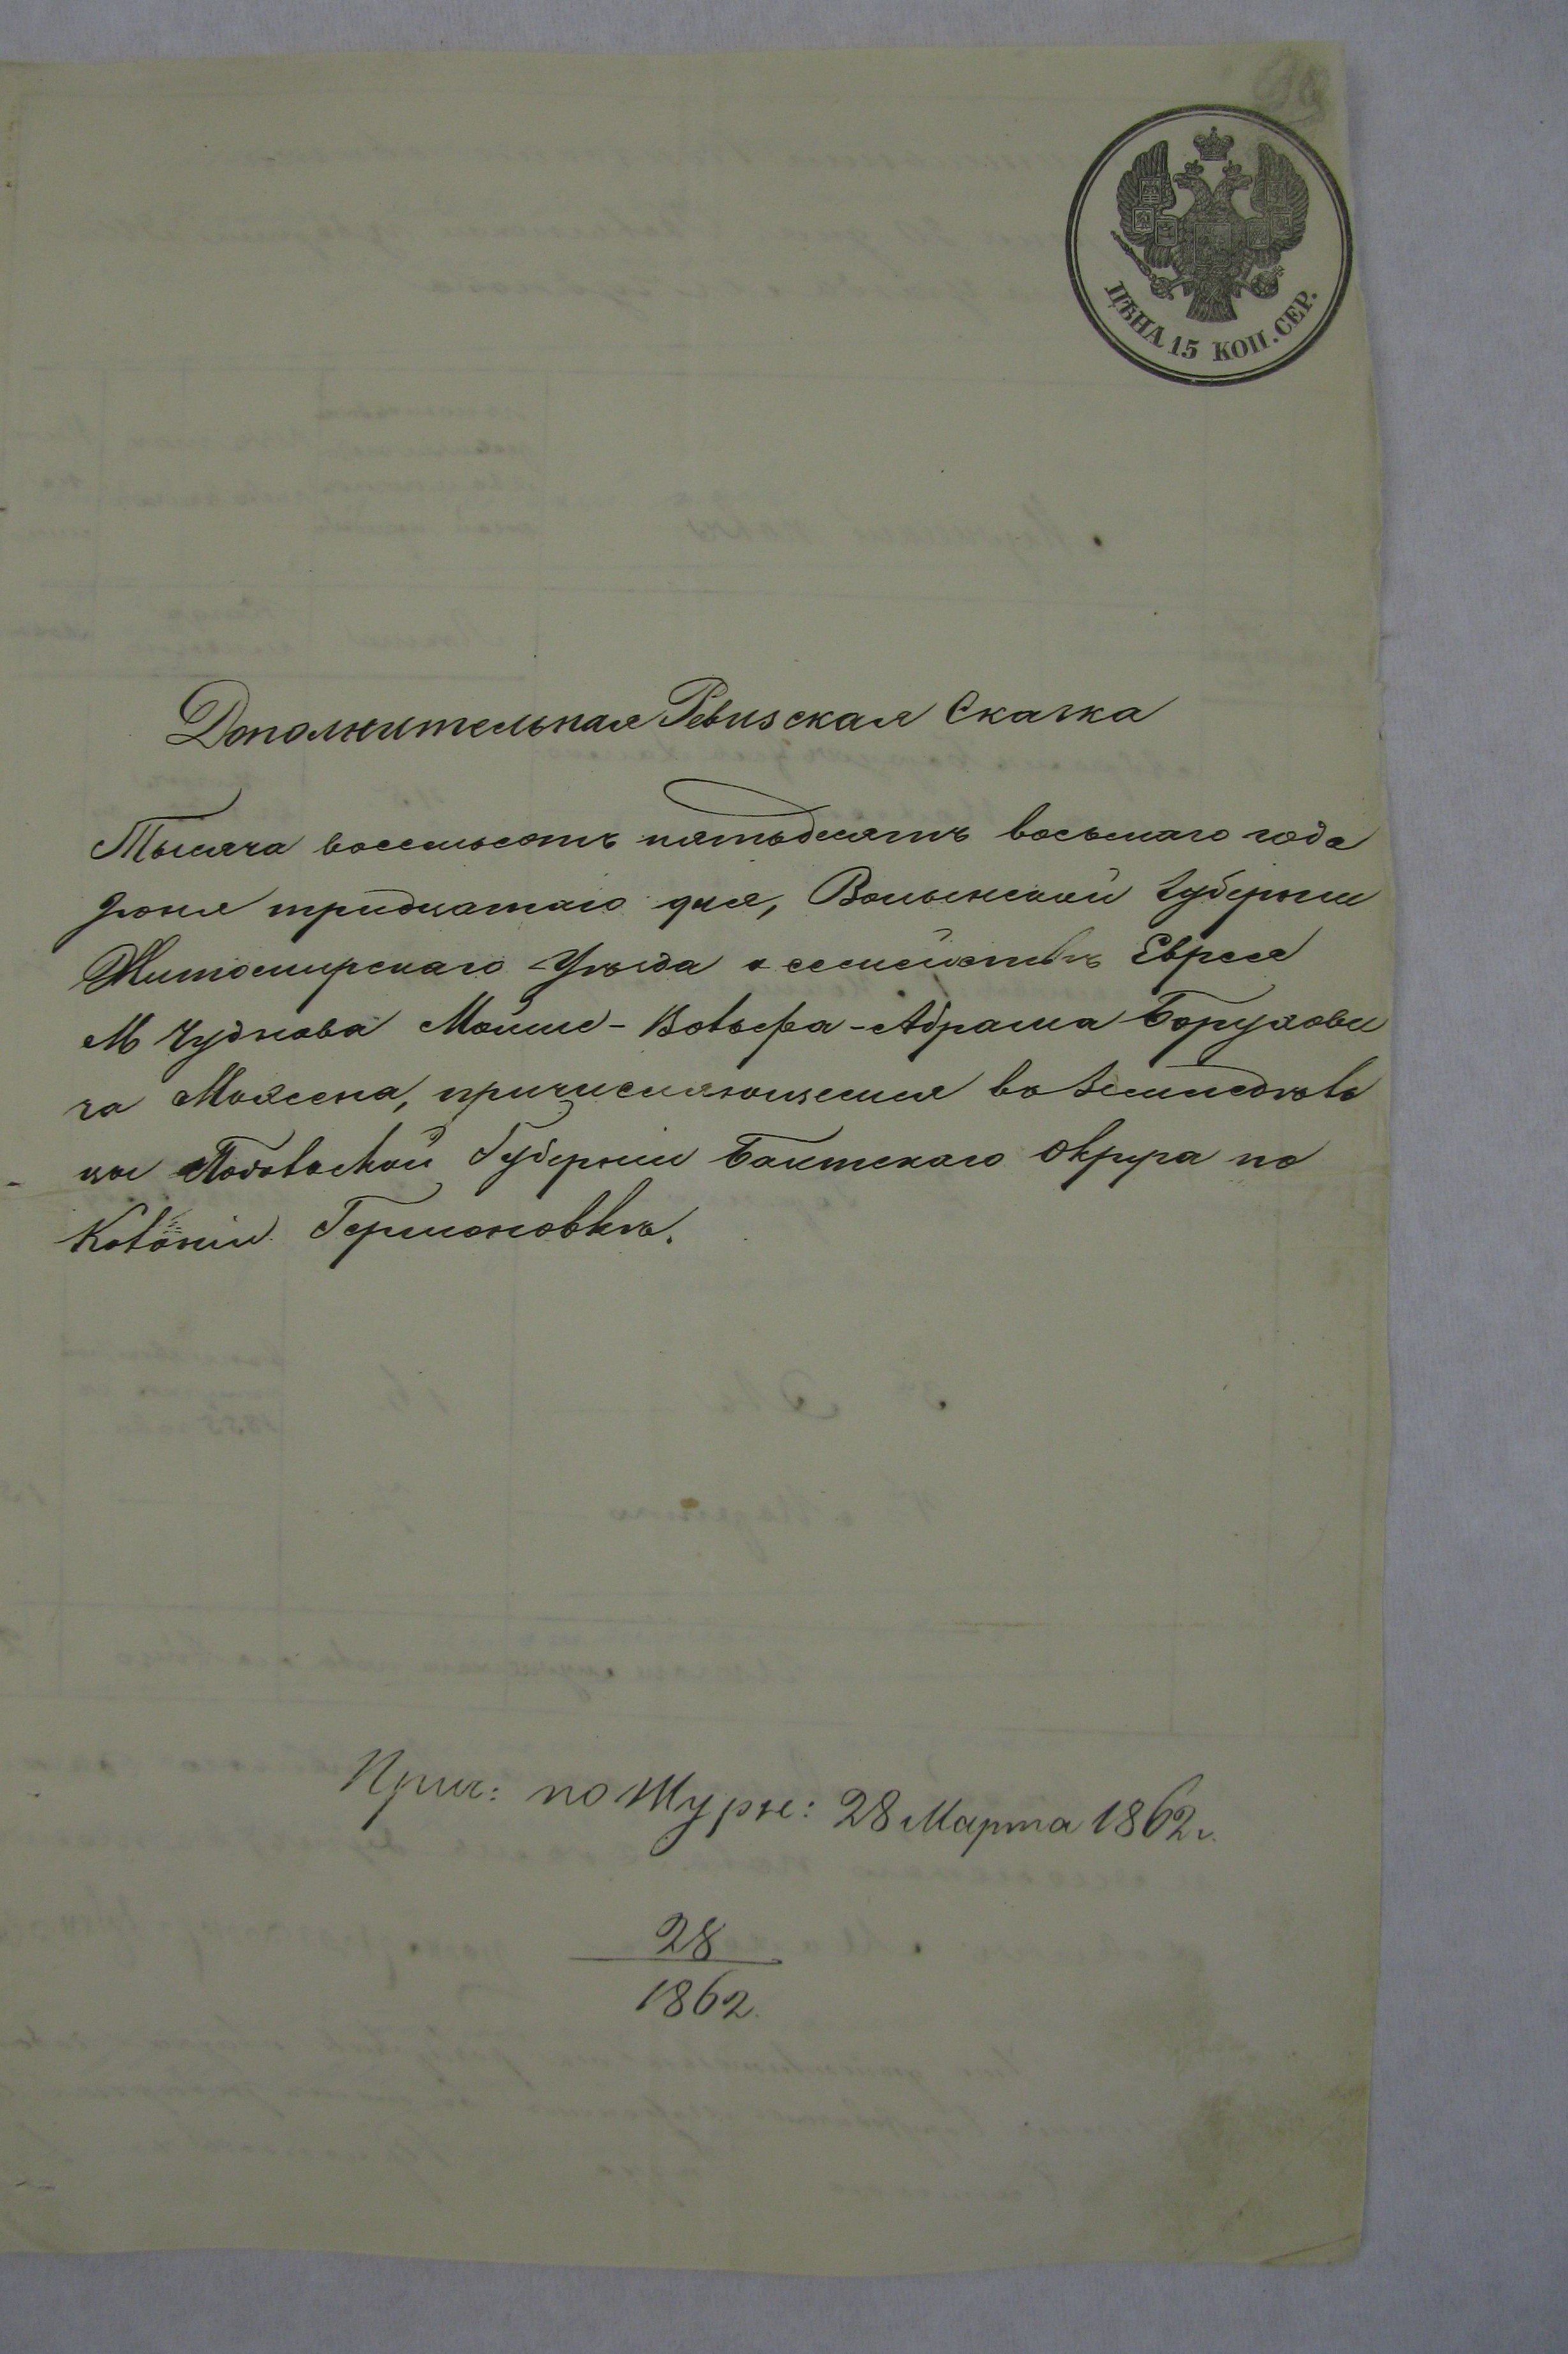 ЦѢНА 15 КОП. СЕР.
Дополнительная Ревизская Сказка
Тысяча восемьсотъ пятьдесятъ восьмаго года
Іюня тридцатаго дня, Волынской Губерніи
Житомирскаго Уѣзда о семействѣ Еврея
М Чуднова Мошше-Вольфа-Абрама Борухови
ча Моясена, причисляющемся въ Земледѣль
цы Подольской Губерніи Балтскаго Округа по
Колоніи Гермоновкѣ.
Прич: по Журн: 28 Марта 1862 г.
28
1862.